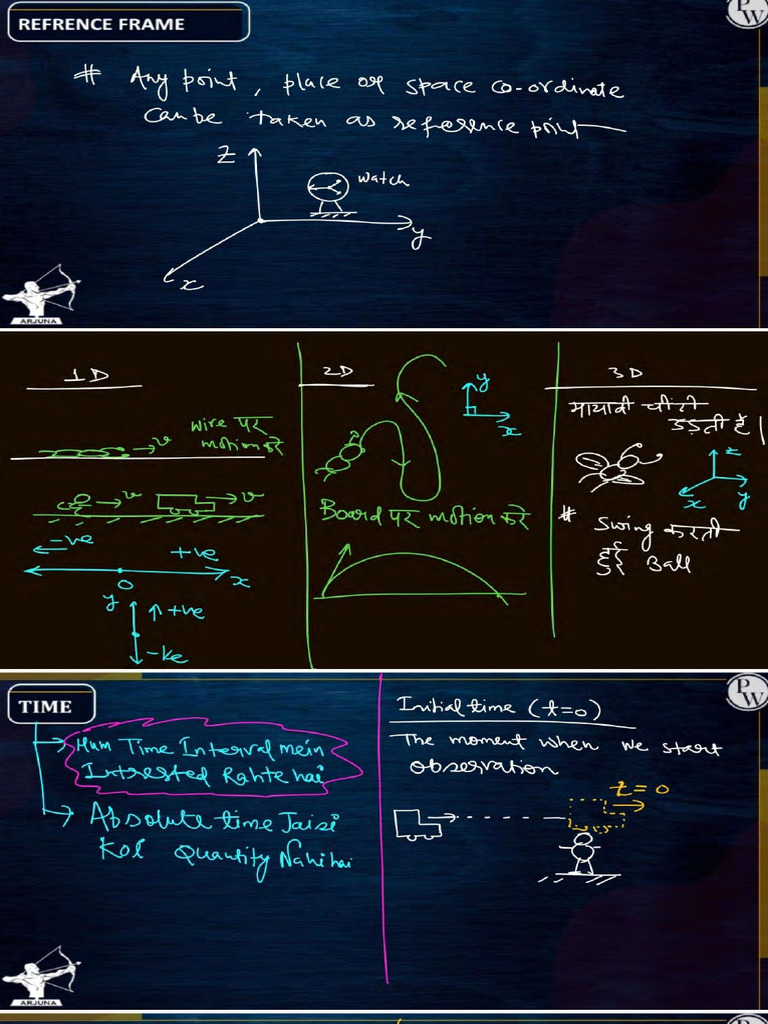 REFRENCE FRAME
PW
# Any point, place or space co-ordinate
can be taken as reference point
Z
watch
y
x
ARJUNA
1D
wire पर
motion करे
v
v
v
-ve
+ve
0
x
y
+ve
-ve
2D
y
x
Board पर motion करे
3D
मायावी चींटी
उड़ती है।
z
x
y
# Swing करती
हुई Ball
TIME
PW
Hum Time Interval mein
Intrested Rahte hai
Absolute time Jaisi
Koi Quantity Nahi hai
Initial time (t=0)
The moment when we start
observation
t = 0
ARJUNA